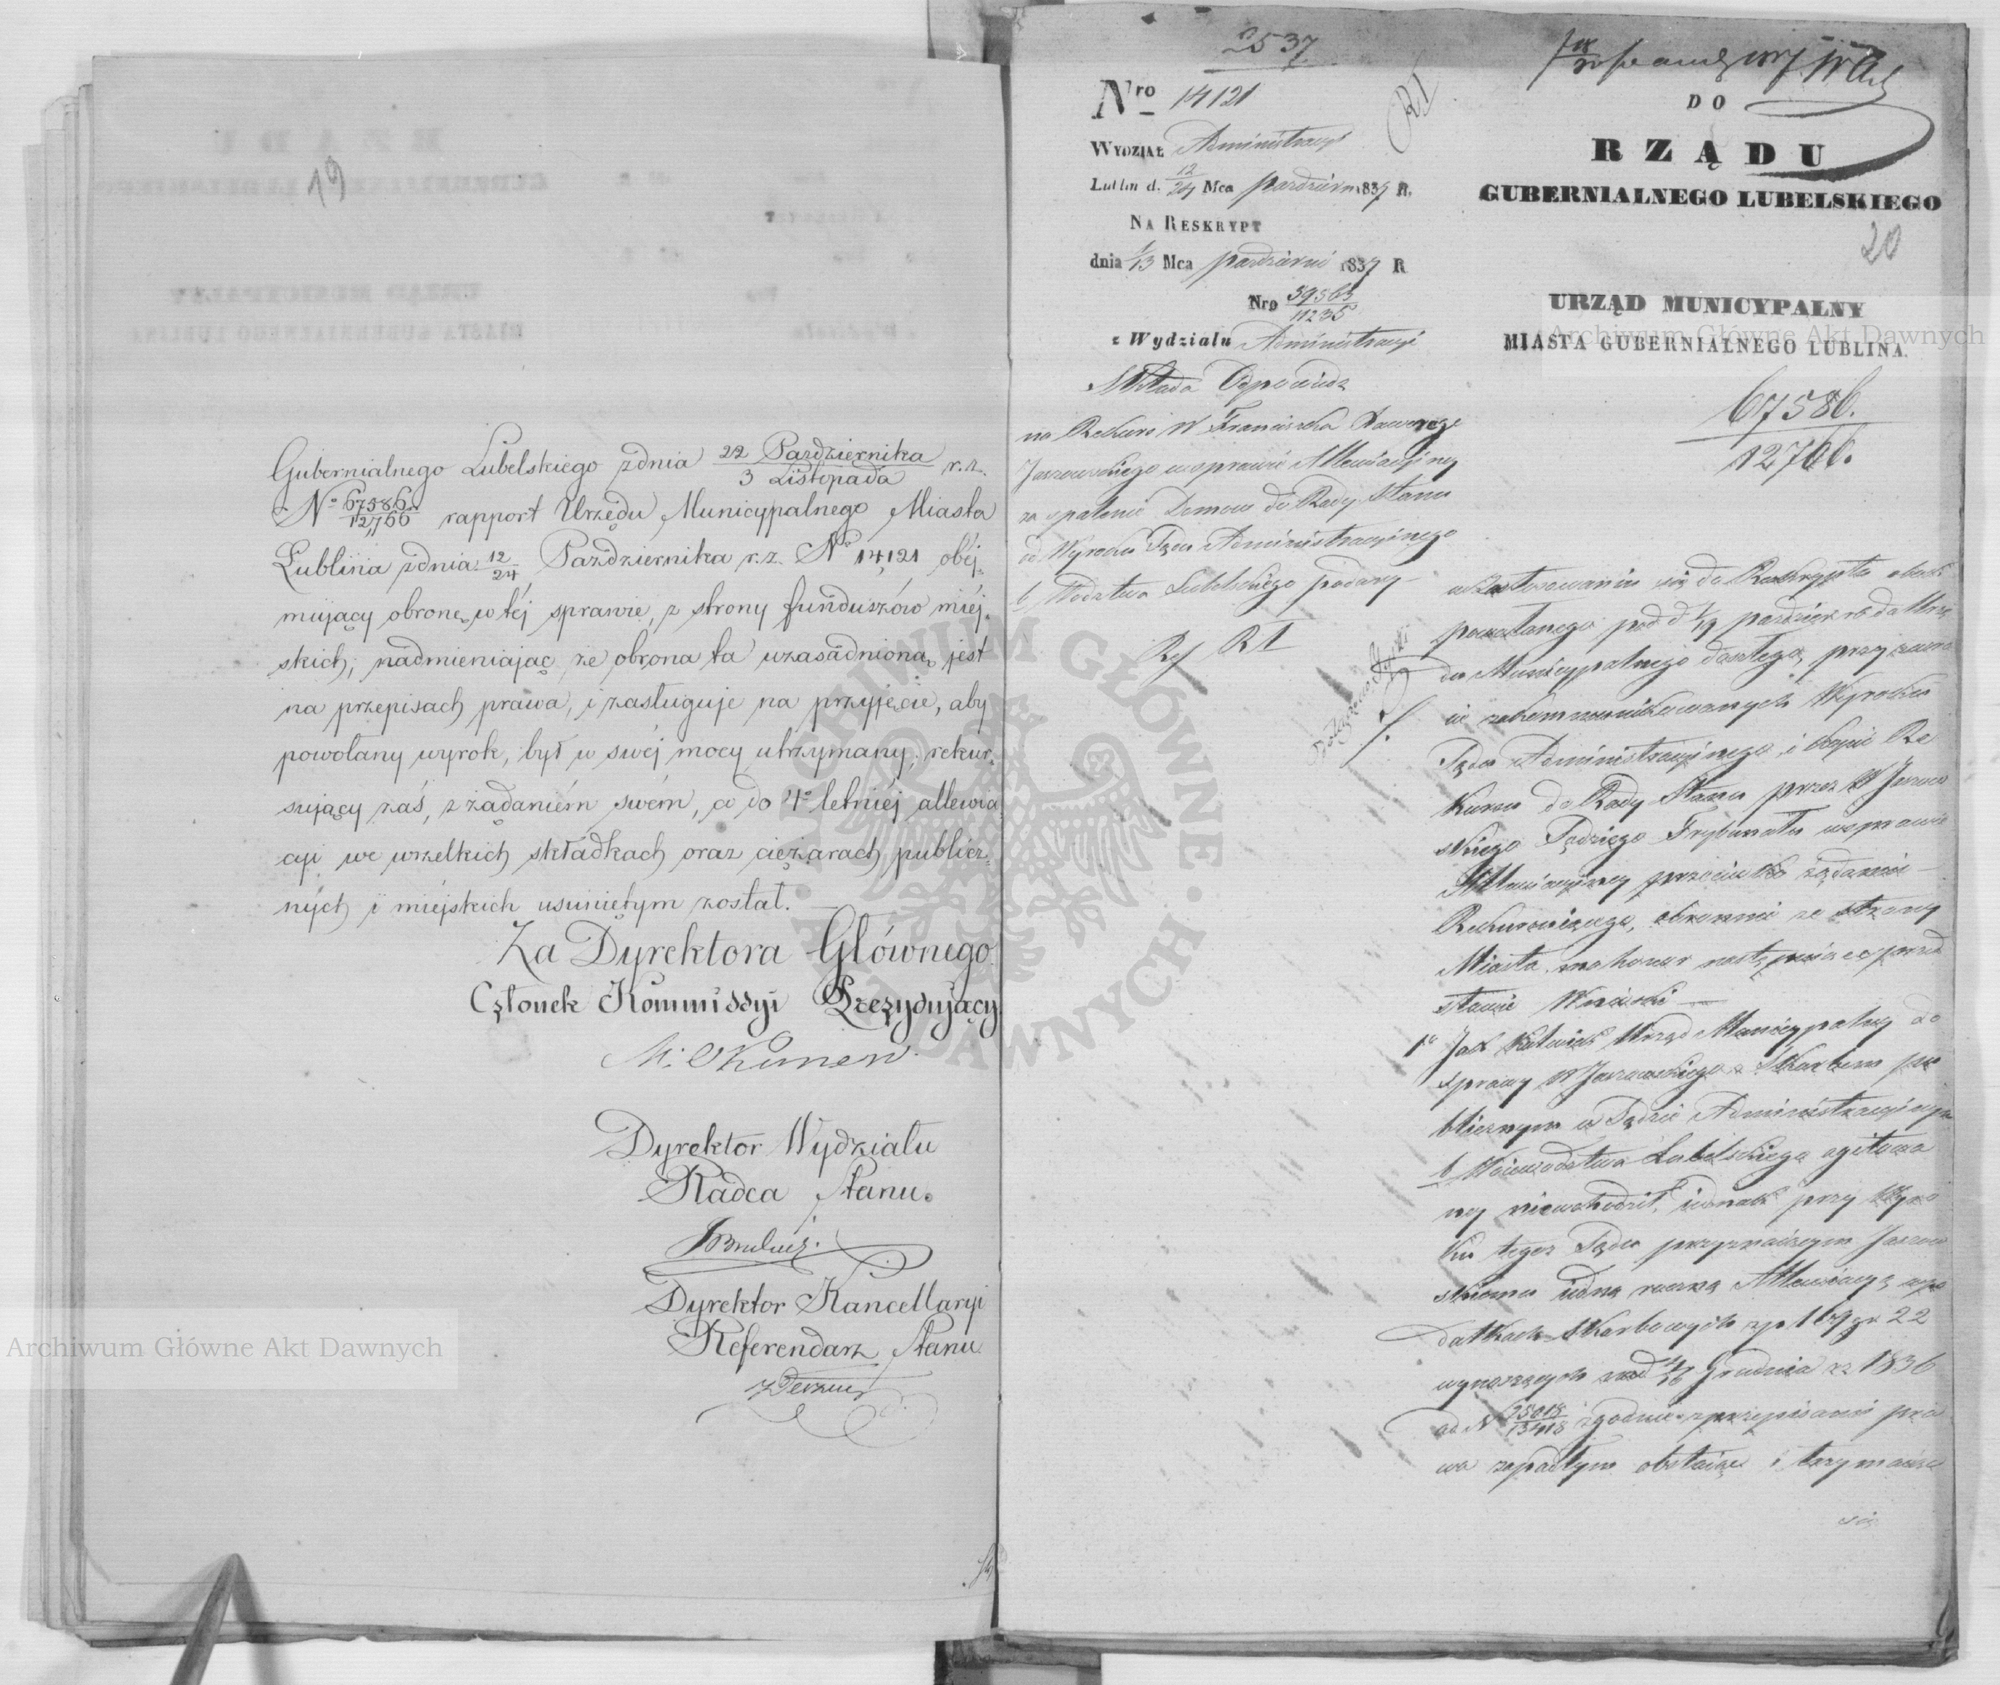 19
Gubernialnego Lubelskiego zdnia 22 Pazdziernika / 3 Listopada r.z.
N° 67586/12766 rapport Urzędu Municypalnego Miasta
Lublina zdnia 12/24 Pazdziernika r.z. N° 14,121 obéj-
mujący obronę w téj sprawie, z strony funduszów miéj-
skich, nadmieniając że obrona ta uzasadnioną jest
na przepisach prawa, i zasługuje na przyjęcie, aby
powołany wyrok, był w swéj mocy utrzymany; rekur-
sujący zaś, z żądaniem swém, co do 4° letniéj allewia
cyi we wszelkich składkach oraz ciężarach publicz-
nych i miéjskich usuniętym został.
Za Dyrektora Głównego
Członek Kommissyi Prezydujący
Dyrektor Wydziału
Radca Stanu.
Dyrektor Kancellaryi
Referendarz Stanu
2537
Nro 14121
WYDZIAŁ Administracyi
Lublin d. 12/24 Mca pazdziern 1837 R.
NA RESKRYPT
dnia 1/13 Mca pazdzierni 1837 R
Nro 39563/11235
z Wydziału Administracyi
Składa Odpowiedz
na Rekurs W Franciszka Xawerego
Jaszowskiego wsprawie Allewiacyiney
za spalenie Domow do Rady Stanu
od Wyroku Sądu Administracyinego
b Wodztwa Lubelskiego podany
DO
RZĄDU
GUBERNIALNEGO LUBELSKIEGO
20
URZĄD MUNICYPALNY
MIASTA GUBERNIALNEGO LUBLINA.
67586.
12766.
wzastosowaniu się do Reskryptu obok
powołanego pod d 1/13 pazdzier rb do Urzę
du Municypalnego doszłego, przy zwro
cie zakommunikowanych Wyroku
Sądu Administracyinego i kopii Re
kursu do Rady Stanu przez W Jaszow
skiego Sędziego Trybunału wsprawie
Allewiacyiney przeciwko żądaniu
Rekursuiącego, obronnie ze strony
Miasta ma honor następuiące przed
stawić Wnioski
1° Jak kolwiek Urząd Municypalny do
sprawy W Jaszowskiego z Skarbem pu
blicznym w Sądzie Administracyinym
b Woiewodztwa Lubelskiego agitowa
ney niewchodził, iednak przy Wyro
ku tegoż Sądu przyznaiącym Jaszow
skiemu iedną roczną Allewiacyą wpo
datkach Skarbowych zp 169 gr 22
wynoszących Grudnia rz 1836
ad N 75018/13418 zgodnie z przepisami pra
wa zapadłym obstaie i trzymaiąc
się
Archiwum Główne Akt Dawnych
Archiwum Główne Akt Dawnych
ARCHIWUM GŁÓWNE AKT DAWNYCH